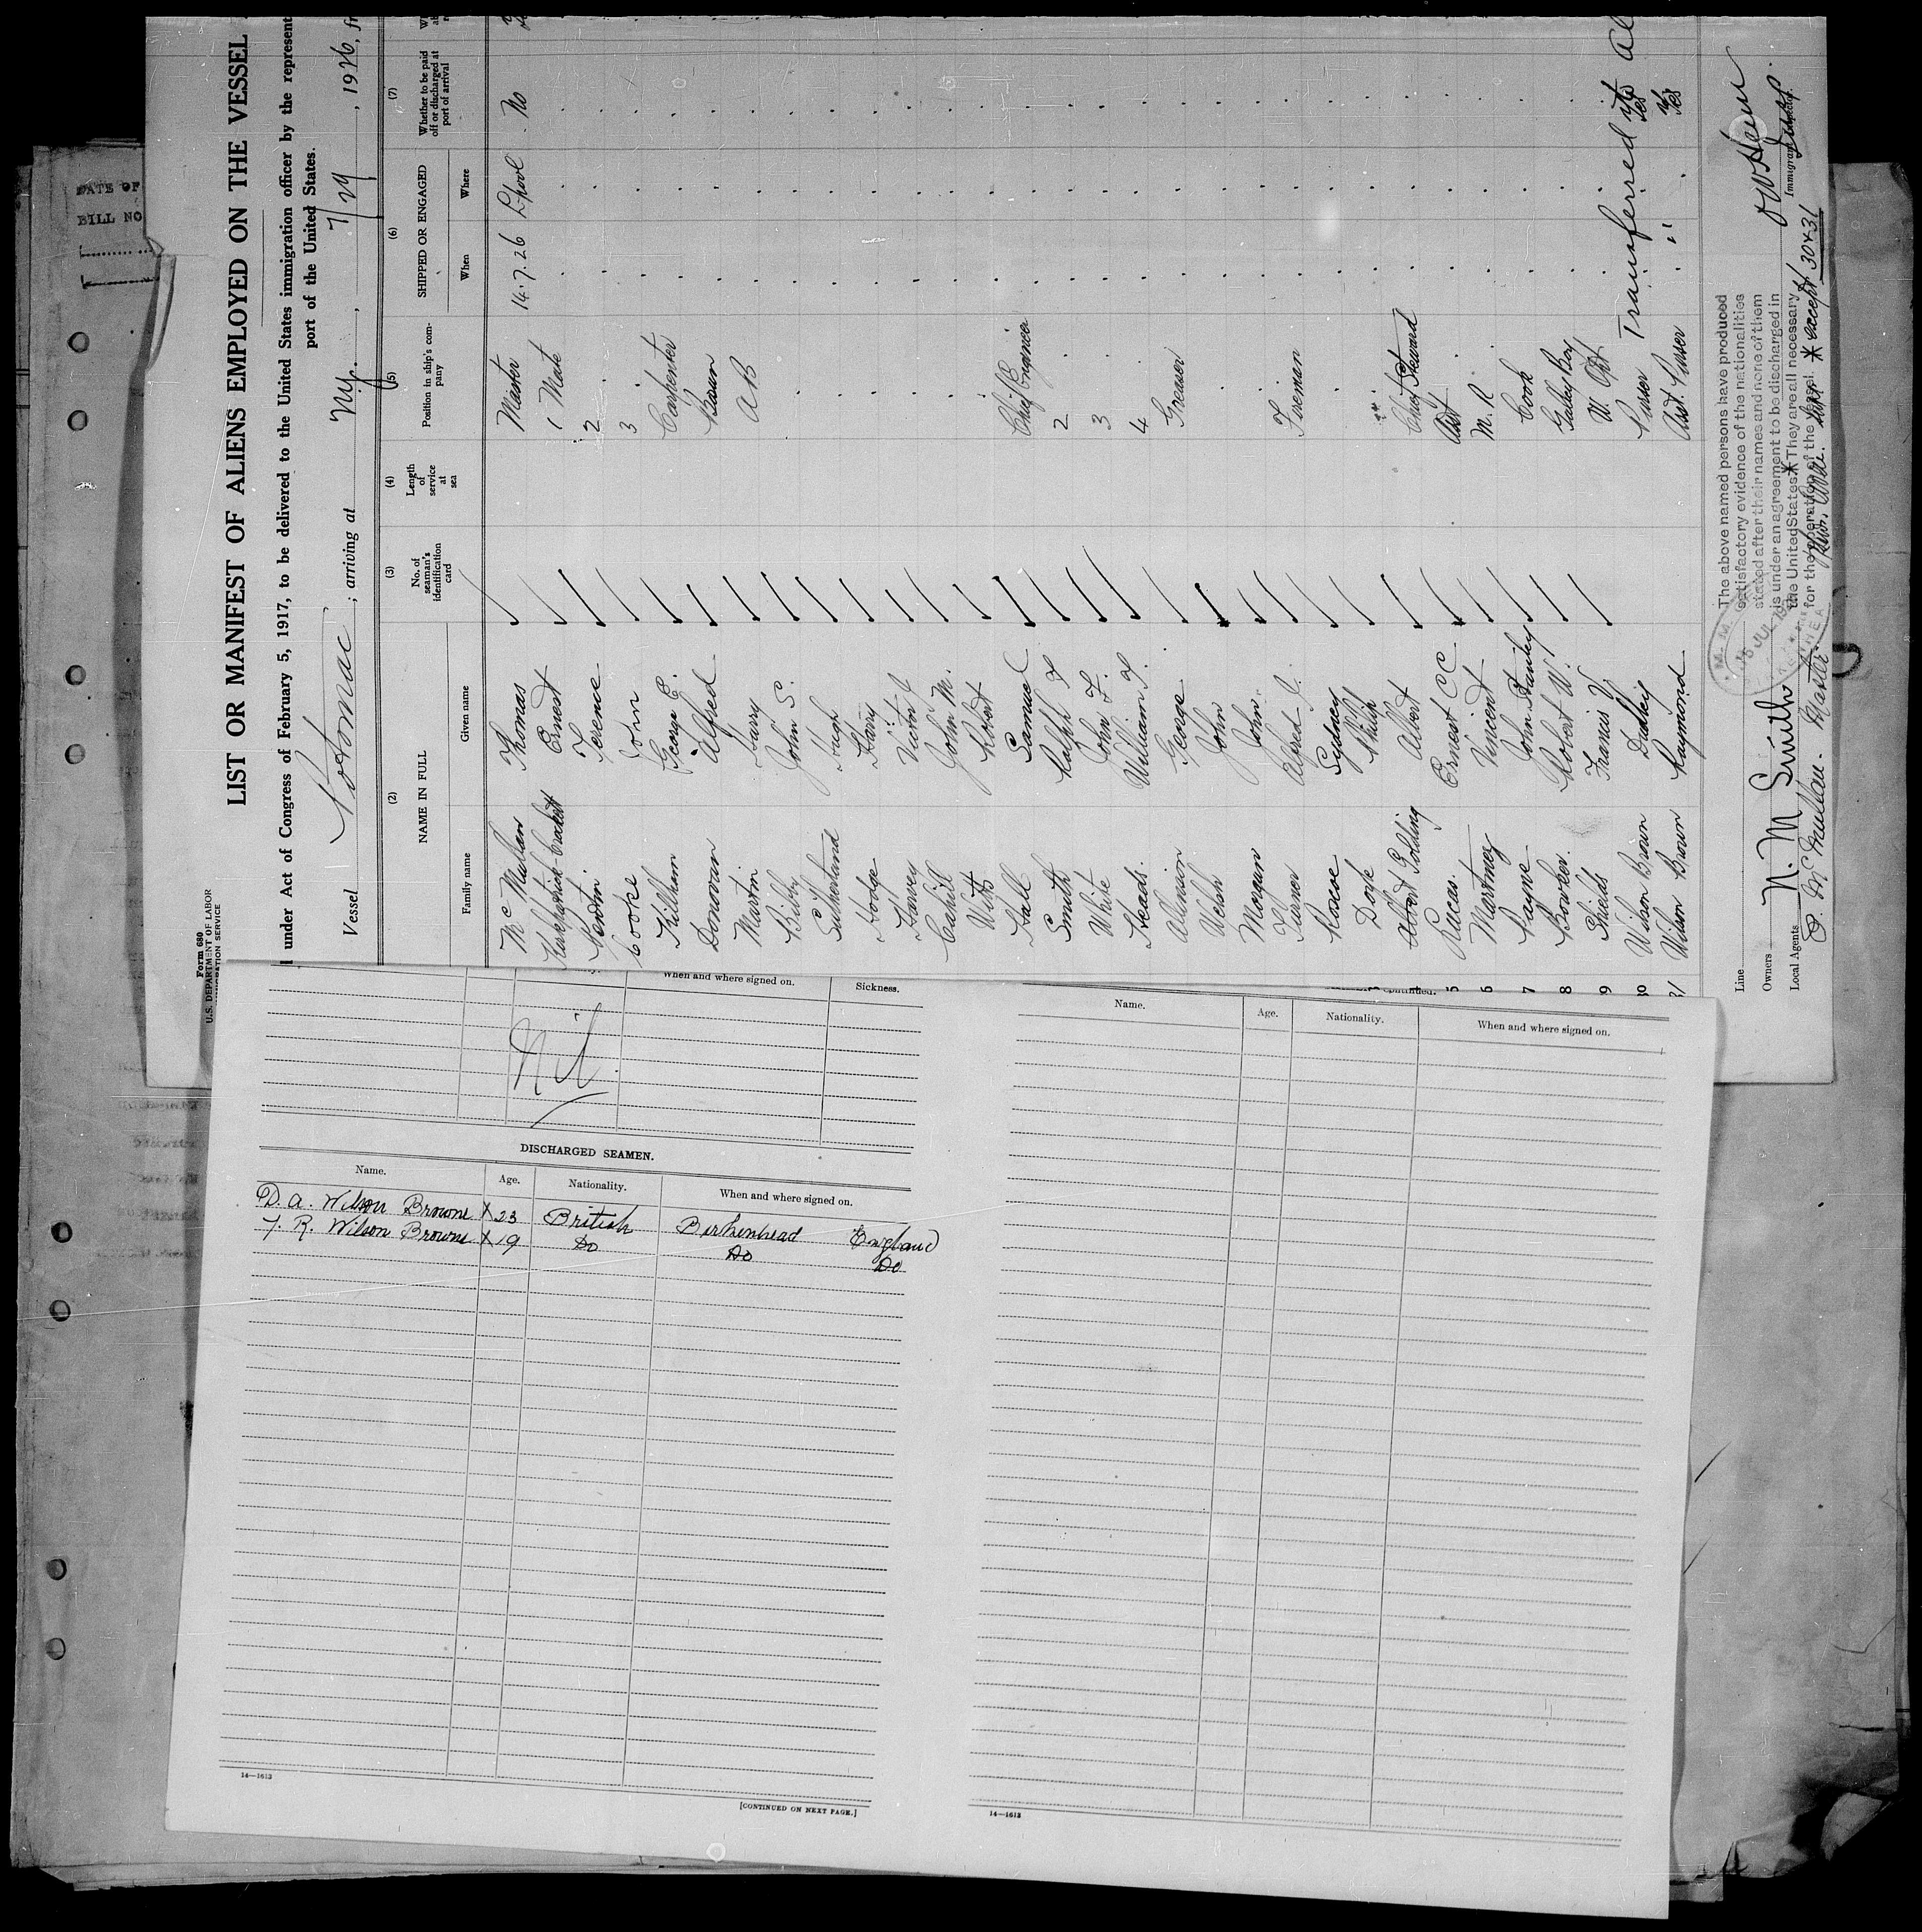 DATE OF
BILL NO
Form 680
U.S. DEPARTMENT OF LABOR
IMMIGRATION SERVICE
LIST OR MANIFEST OF ALIENS EMPLOYED ON THE VESSEL
under Act of Congress of February 5, 1917, to be delivered to the United States immigration officer by the represent
port of the United States.
Vessel Potomac ; arriving at N.Y. , 7/29 , 1926, fr
(2) (3) (4) (5) (6) (7)
NAME IN FULL
No. of seaman's identification card
Length of service at sea
Position in ship's company
SHIPPED OR ENGAGED
Whether to be paid off or discharged at port of arrival
Family name Given name When Where
McMullan Thomas Master 14.7.26 L'pool No
Ernest 1 Mate
Terence 2
Cooke John 3
Killham George E. Carpenter
Donovan Alfred Bosun
Martin Harry A B
Bibby John S.
Sutherland Hugh
Hodge Harry
Harvey Victor J
Cahill John M.
Watts Robert
Hall Samuel Chief Engineer
Smith Ralph S 2
White John F. 3
Heads William T. 4
Allenson George Greaser
Welsh John
Morgan John
Turner Alfred J. Fireman
Roscoe Sydney
Doyle Philip
Golding Albert Chief Steward
5 Lucas Ernest C C Asst
6 Martinez Vincent M. R
7 Payne John Stanley Cook
8 Bowker Robert W. Galley Boy
9 Shields Francis V W. Opt
30 Wilson Brown Dudley Purser Transferred to Yes
31 Wilson Brown Raymond Asst. Purser " " Yes
Line
Owners N. M. Smith
Local Agents
T. McMullan. Master
The above named persons have produced
satisfactory evidence of the nationalities
stated after their names and none of them
is under an agreement to be discharged in
the United States * They are all necessary
for the operation of the vessel * except 30 & 31
Immigrant Inspector.
When and where signed on. Sickness.
Nil
DISCHARGED SEAMEN.
Name. Age. Nationality. When and where signed on.
D. A. Wilson Browne X 23 British Birkenhead England
T. R. Wilson Browne X 19 Do Do Do
14—1612
[CONTINUED ON NEXT PAGE.]
continued.
Name. Age. Nationality. When and where signed on.
14—1612